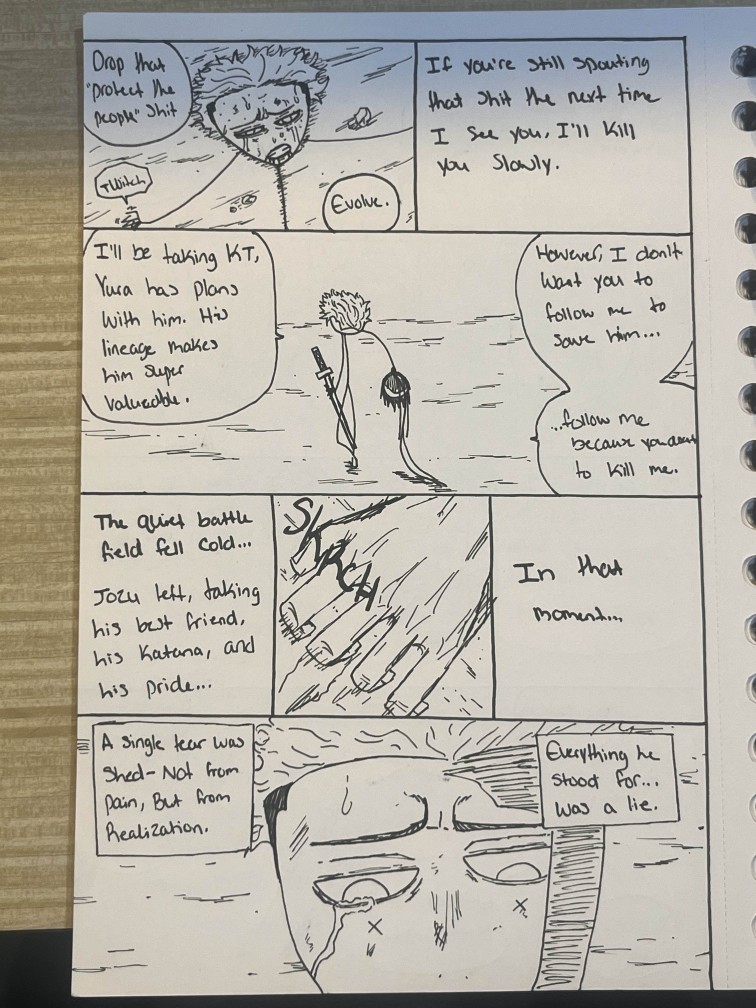 Drop that
"protect the
people" shit
Twitch
Evolve.
If you're still spouting
that shit the next time
I see you, I'll kill
you slowly.
I'll be taking KT,
Yura has plans
with him. His
lineage makes
him super
valueable.
However, I don't
want you to
follow me to
save him...
...follow me
because you want
to kill me.
The quiet battle
field fell cold...
Jozu left, taking
his best friend,
his Katana, and
his pride...
SKRCH
In that
moment...
A single tear was
shed- Not from
pain, But from
Realization.
Everything he
stood for...
was a lie.